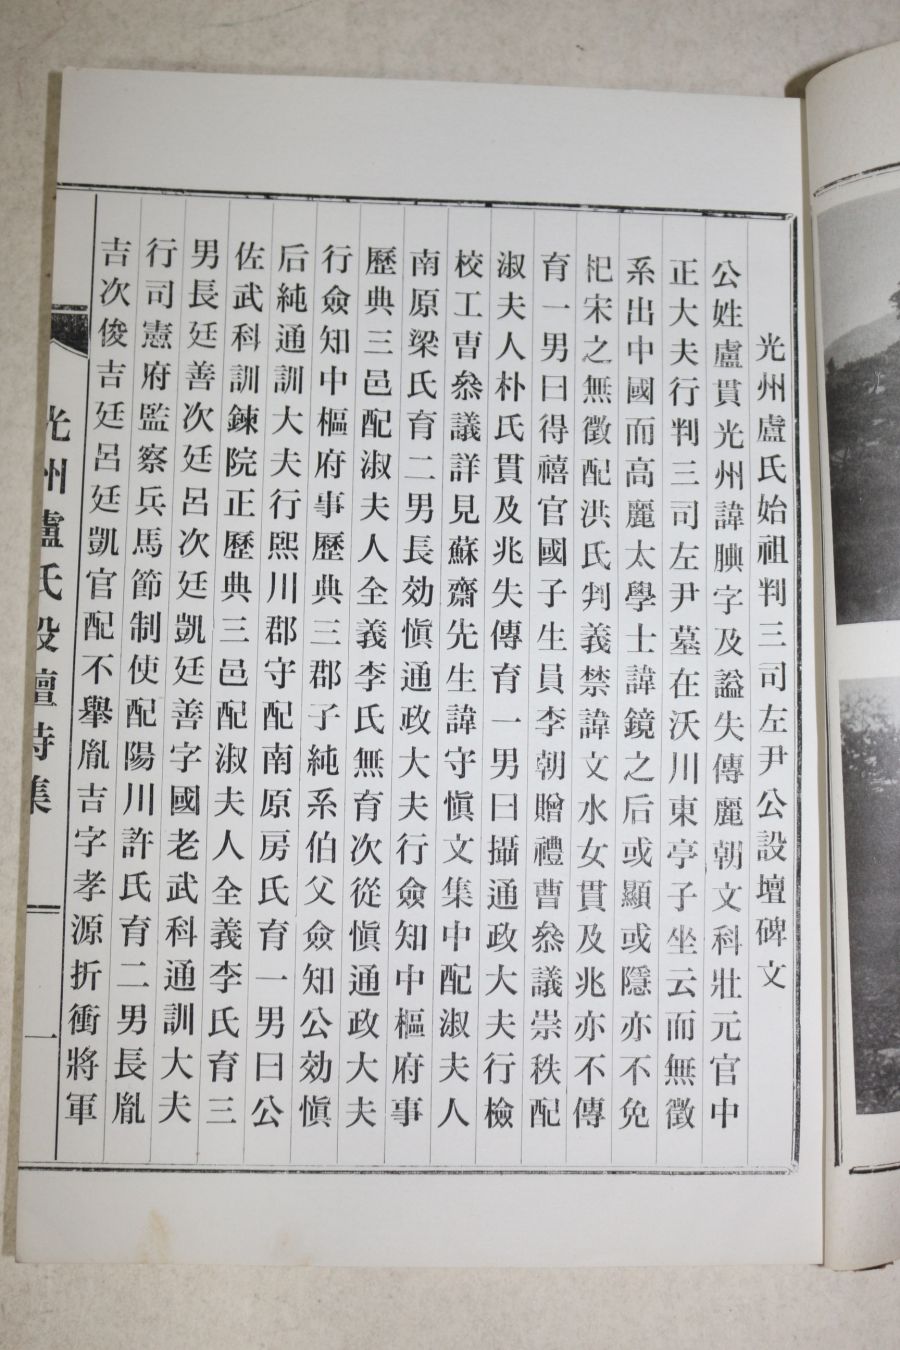 光州盧氏始祖判三司左尹公設壇碑文
公姓盧貫光州諱腆字及謚失傳麗朝文科壯元官中
正大夫行判三司左尹墓在沃川東亭子坐云而無徵
系出中國而高麗太學士諱鏡之后或顯或隱亦不免
杞宋之無徵配洪氏判義禁諱文水女貫及兆亦不傳
育一男曰得禧官國子生員李朝贈禮曹叅議崇秩配
淑夫人朴氏貫及兆失傳育一男曰攝通政大夫行檢
校工曺叅議詳見蘇齋先生諱守愼文集中配淑夫人
南原梁氏育二男長効愼通政大夫行僉知中樞府事
歷典三邑配淑夫人全義李氏無育次從愼通政大夫
行僉知中樞府事歷典三郡子純系伯父僉知公効愼
后純通訓大夫行熙川郡守配南原房氏育一男曰公
佐武科訓鍊院正歷典三邑配淑夫人全義李氏育三
男長廷善次廷呂次廷凱廷善字國老武科通訓大夫
行司憲府監察兵馬節制使配陽川許氏育二男長胤
吉次俊吉廷呂廷凱官配不舉胤吉字孝源折衝將軍
光州盧氏設壇詩集
一